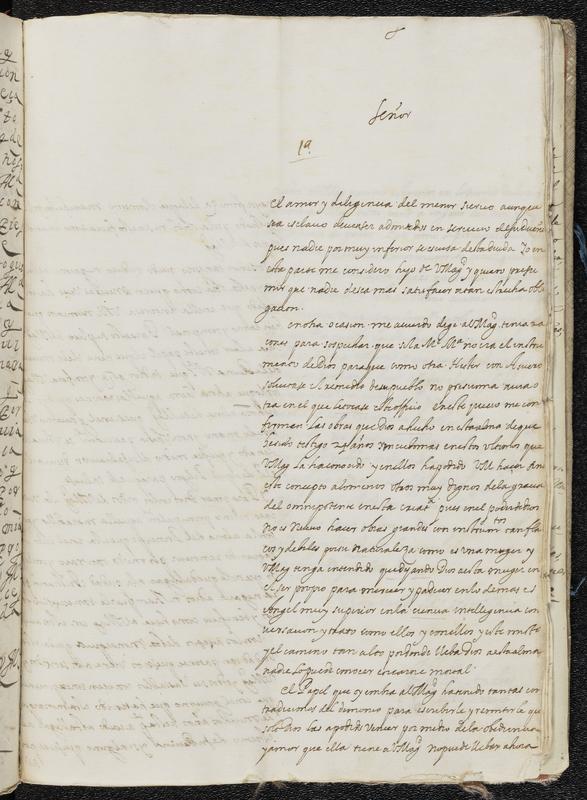 Señor
19
El amor y diligencia del menor siervo aunque
sea esclavo deve ser admitido en servicio de su dueño
pues nadie por muy inferior se escusa desta deuda Yo en
esta parte me considero hijo de VMagd y quiero presu
mir que nadie desea mas satisfacer a tan estrecha obli
gacion.
En otra ocasion me acuerdo dege a VMagd tenia ra
çones para sospechar que la Me Ma no era el instru
mento de Dios para que como otra Hester con Asuero
solicitase el remedio de su pueblo no presumia nunca o
tra en el que en este pueso me con
firman las obras que Dios a hecho en esta alma de que
he sido testigo años con en estos ultimos que
VMagd la ha conocido y en ellos ha podido VM hacer
concepto a lo menos otros muy dignos de la gracia
del omnipotente en esta criatra pues en el poder de Dios
no es nuevo hacer obras grandes con instrumtos tan fla
cos y debiles por su naturaleza como es una muger y
VMagd tenga entendido que dejando Dios a esta muger en
el ser propio para merecer y padecer en lo demas es
Angel muy superior en la ciencia intelligencia con
versacion y trato como ellos y con ellos y este
y el camino tan alto por donde lleba Dios a esta alma
nadie lo puede conocer en carne mortal.
El Papel que y embia a VMagd haviendo tantas con
tradiciones del demonio para escribirle y remitirle que
solo Dios las a podido vencer por medio de la obediencia
y amor que ella tiene a VMagd no puede lleber ahora